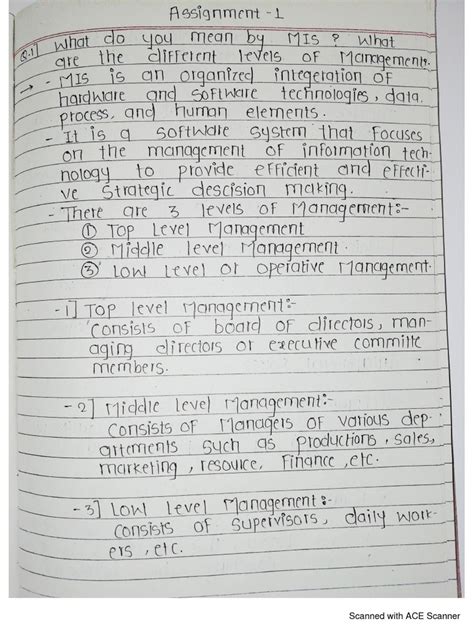 Assignment - 1
Q.1] What do you mean by MIS ? What
are the different levels of Management.
→ - MIS is an organized integeration of
hardware and software technologies, data,
process, and human elements.
- It is a software system that focuses
on the management of information tech-
nology to provide efficient and effecti-
ve strategic descision making.
- There are 3 levels of Management:-
① Top Level Management
② Middle level Management.
③ Low Level or operative Management.
- 1] Top level Management:-
Consists of board of directors, man-
aging directors or executive committe
members.
- 2] Middle level Management:-
Consists of Managers of various dep-
artements such as productions, sales,
marketing, resource, finance, etc.
- 3] Low level Management:-
Consists of supervisors, daily work-
ers, etc.
Scanned with ACE Scanner